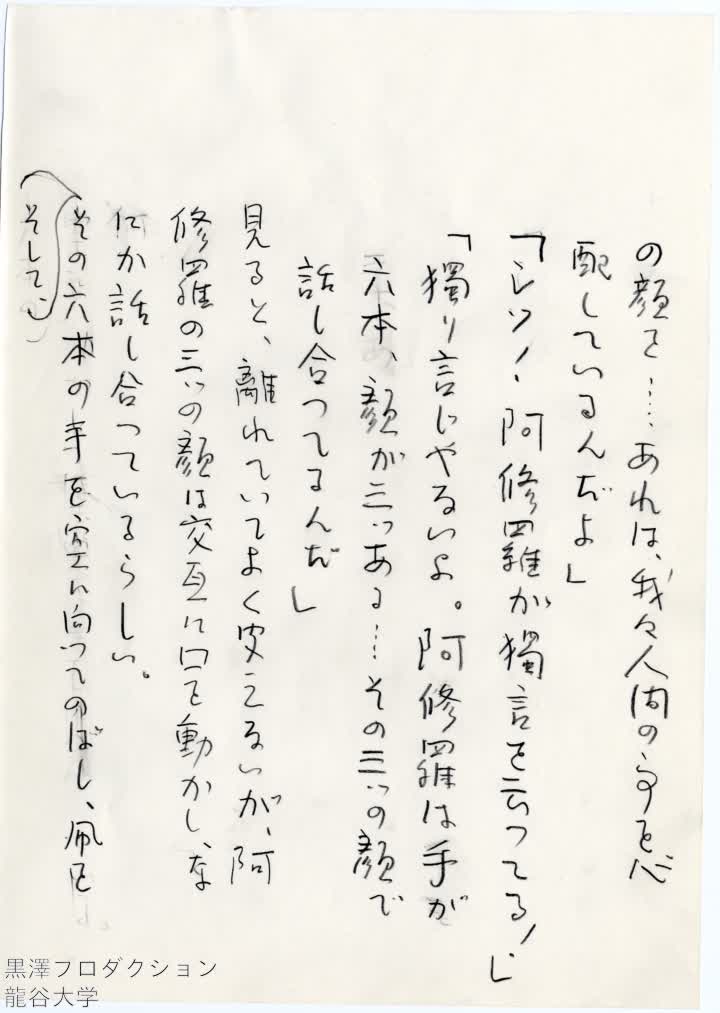 の顔を……あれは、我々人間の事を心
配しているんだよ」
「シッ！阿修羅が獨言を云つてる！」
「獨り言じやないよ。阿修羅は手が
六本、顔が三つある……その三つの顔で
話し合つてるんだ」
見ると、離れていてよく聞えないが、阿
修羅の三つの顔は交互に口を動かし、な
にか話し合つているらしい。
その六本の手を空に向つてのばし、凧を
そして、
黒澤プロダクション
龍谷大学